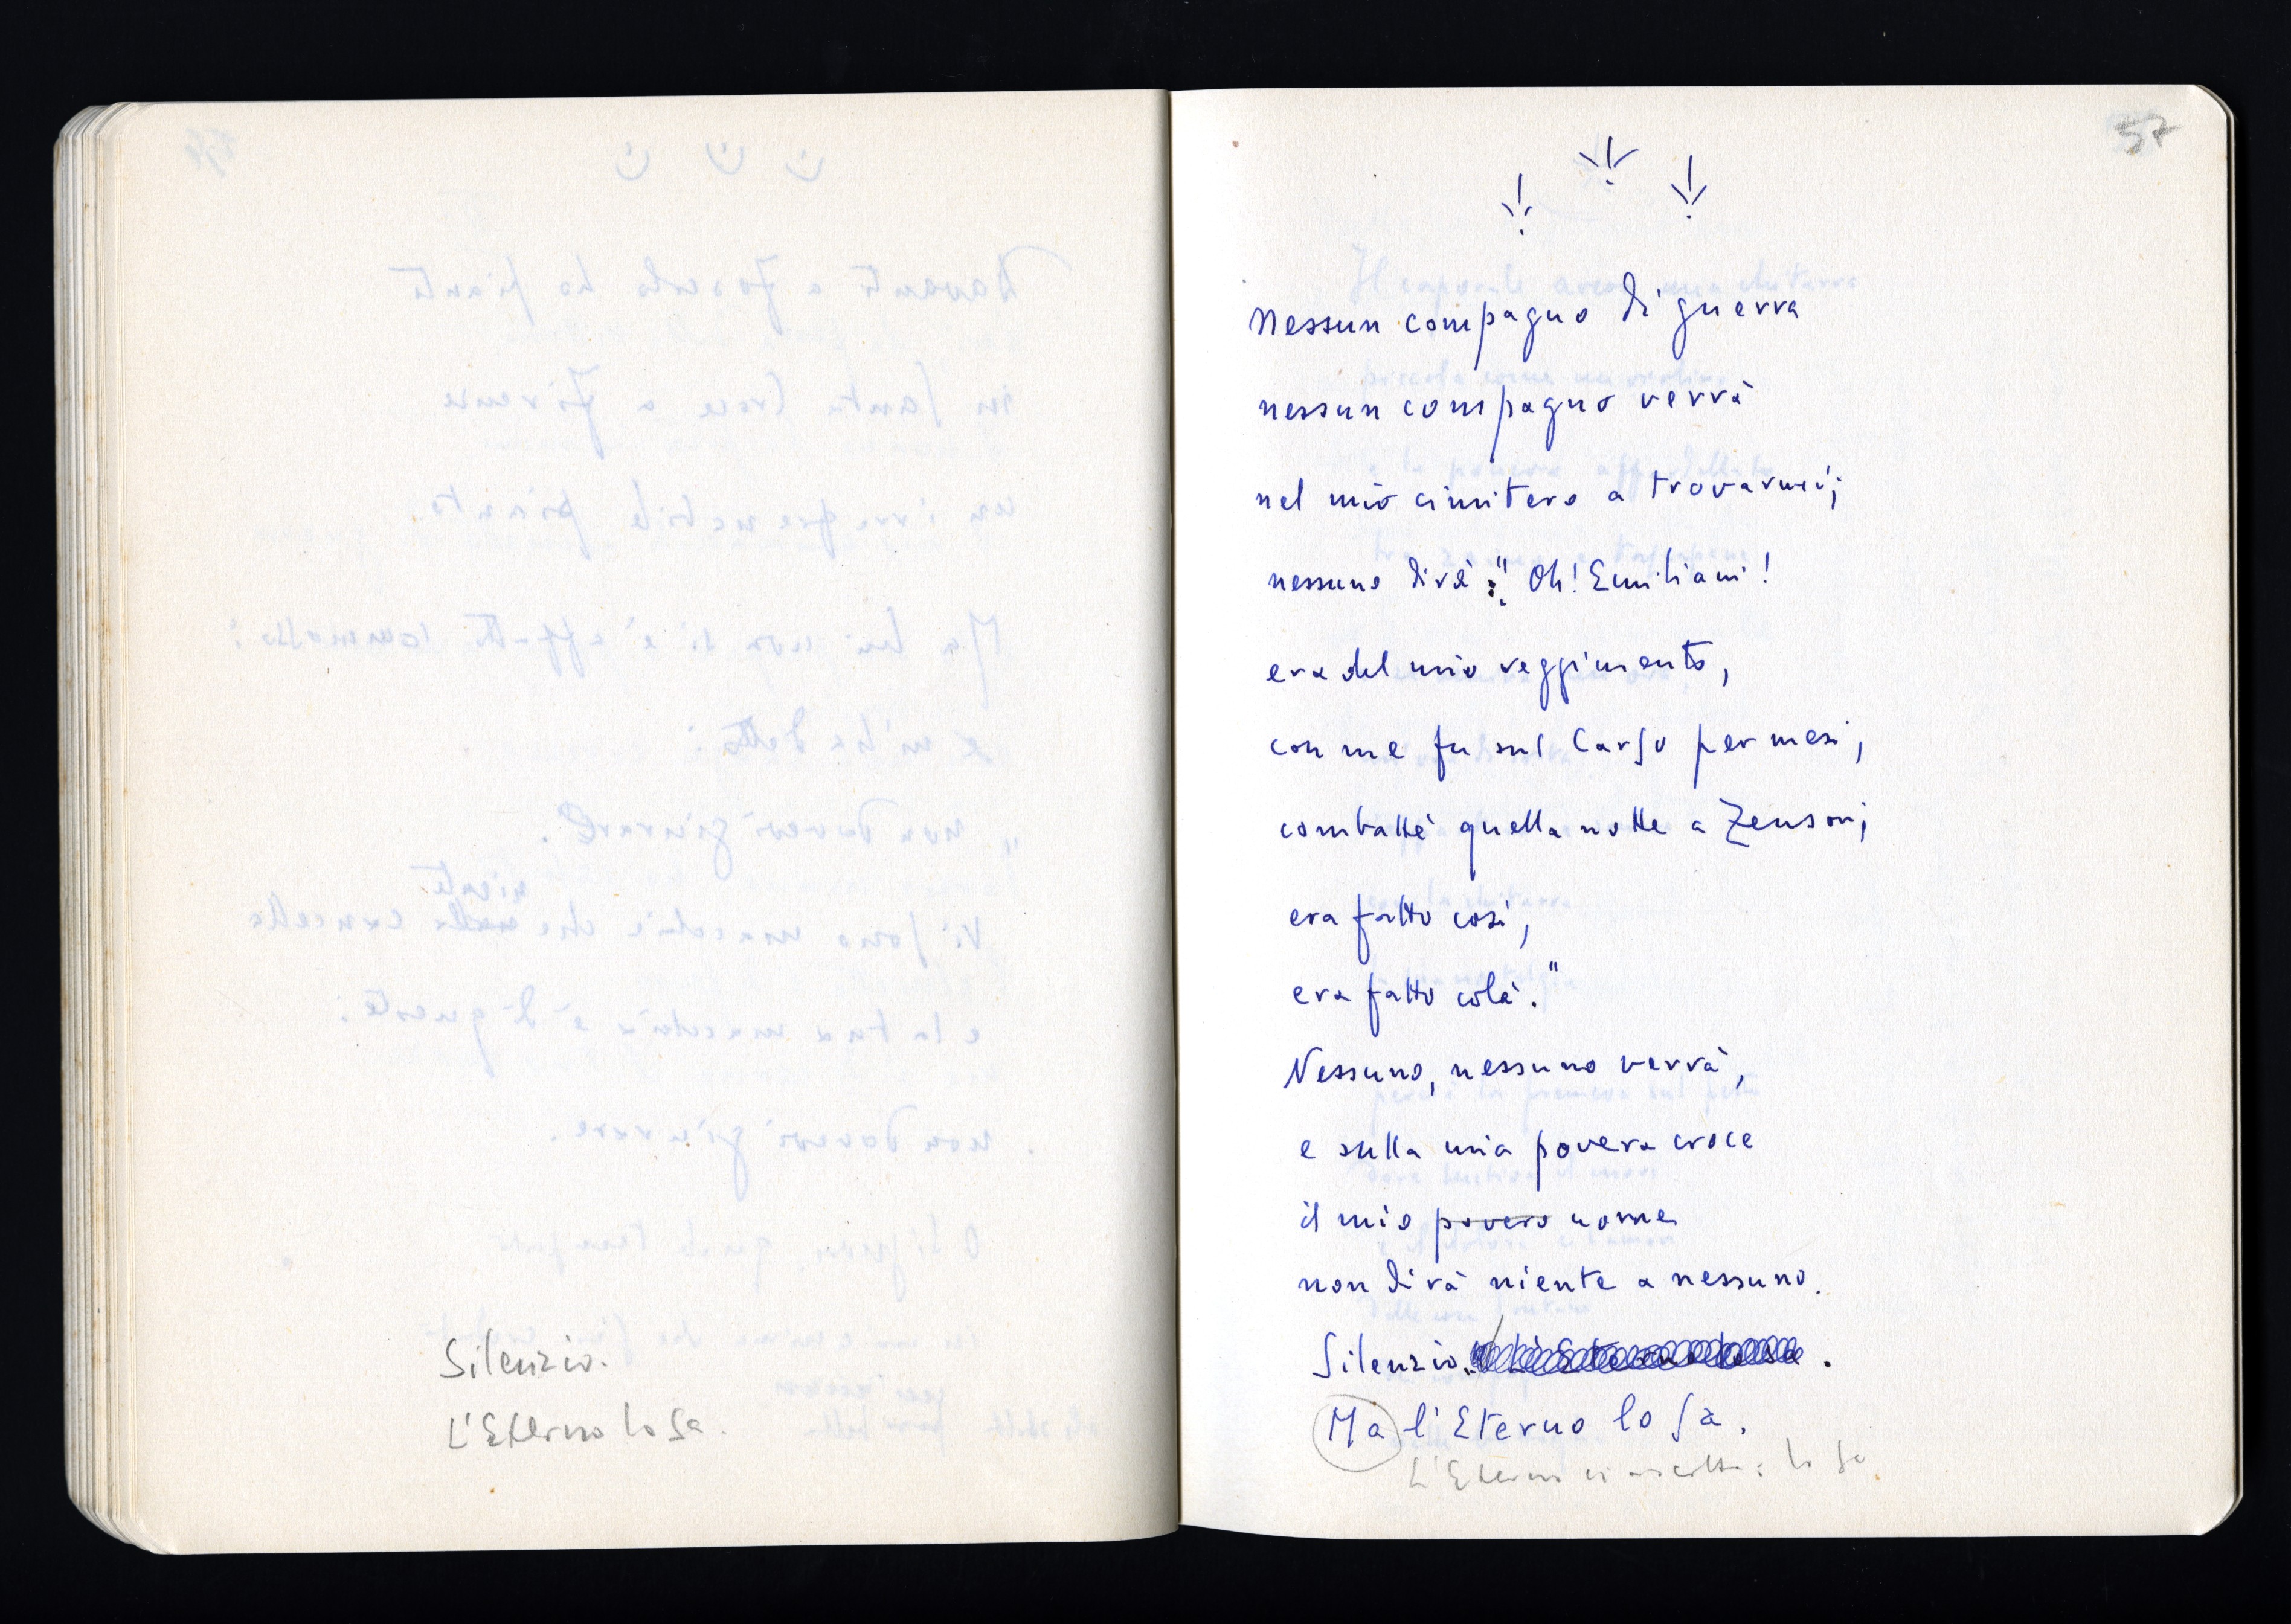 Silenzio.
L'Eterno lo sa.
57
Nessun compagno di guerra
nessun compagno verrà
nel mio cimitero a trovarmi;
nessuno dirà: "Oh! Emiliani!
era del mio reggimento,
con me fu sul Carso per mesi,
combattè quella notte a Zenson;
era fatto così,
era fatto colà."
Nessuno, nessuno verrà,
e sulla mia povera croce
il mio povero nome
non dirà niente a nessuno.
Silenzio.
Ma l'Eterno lo sà.
L'Eterno ci ascolta: lo sa.